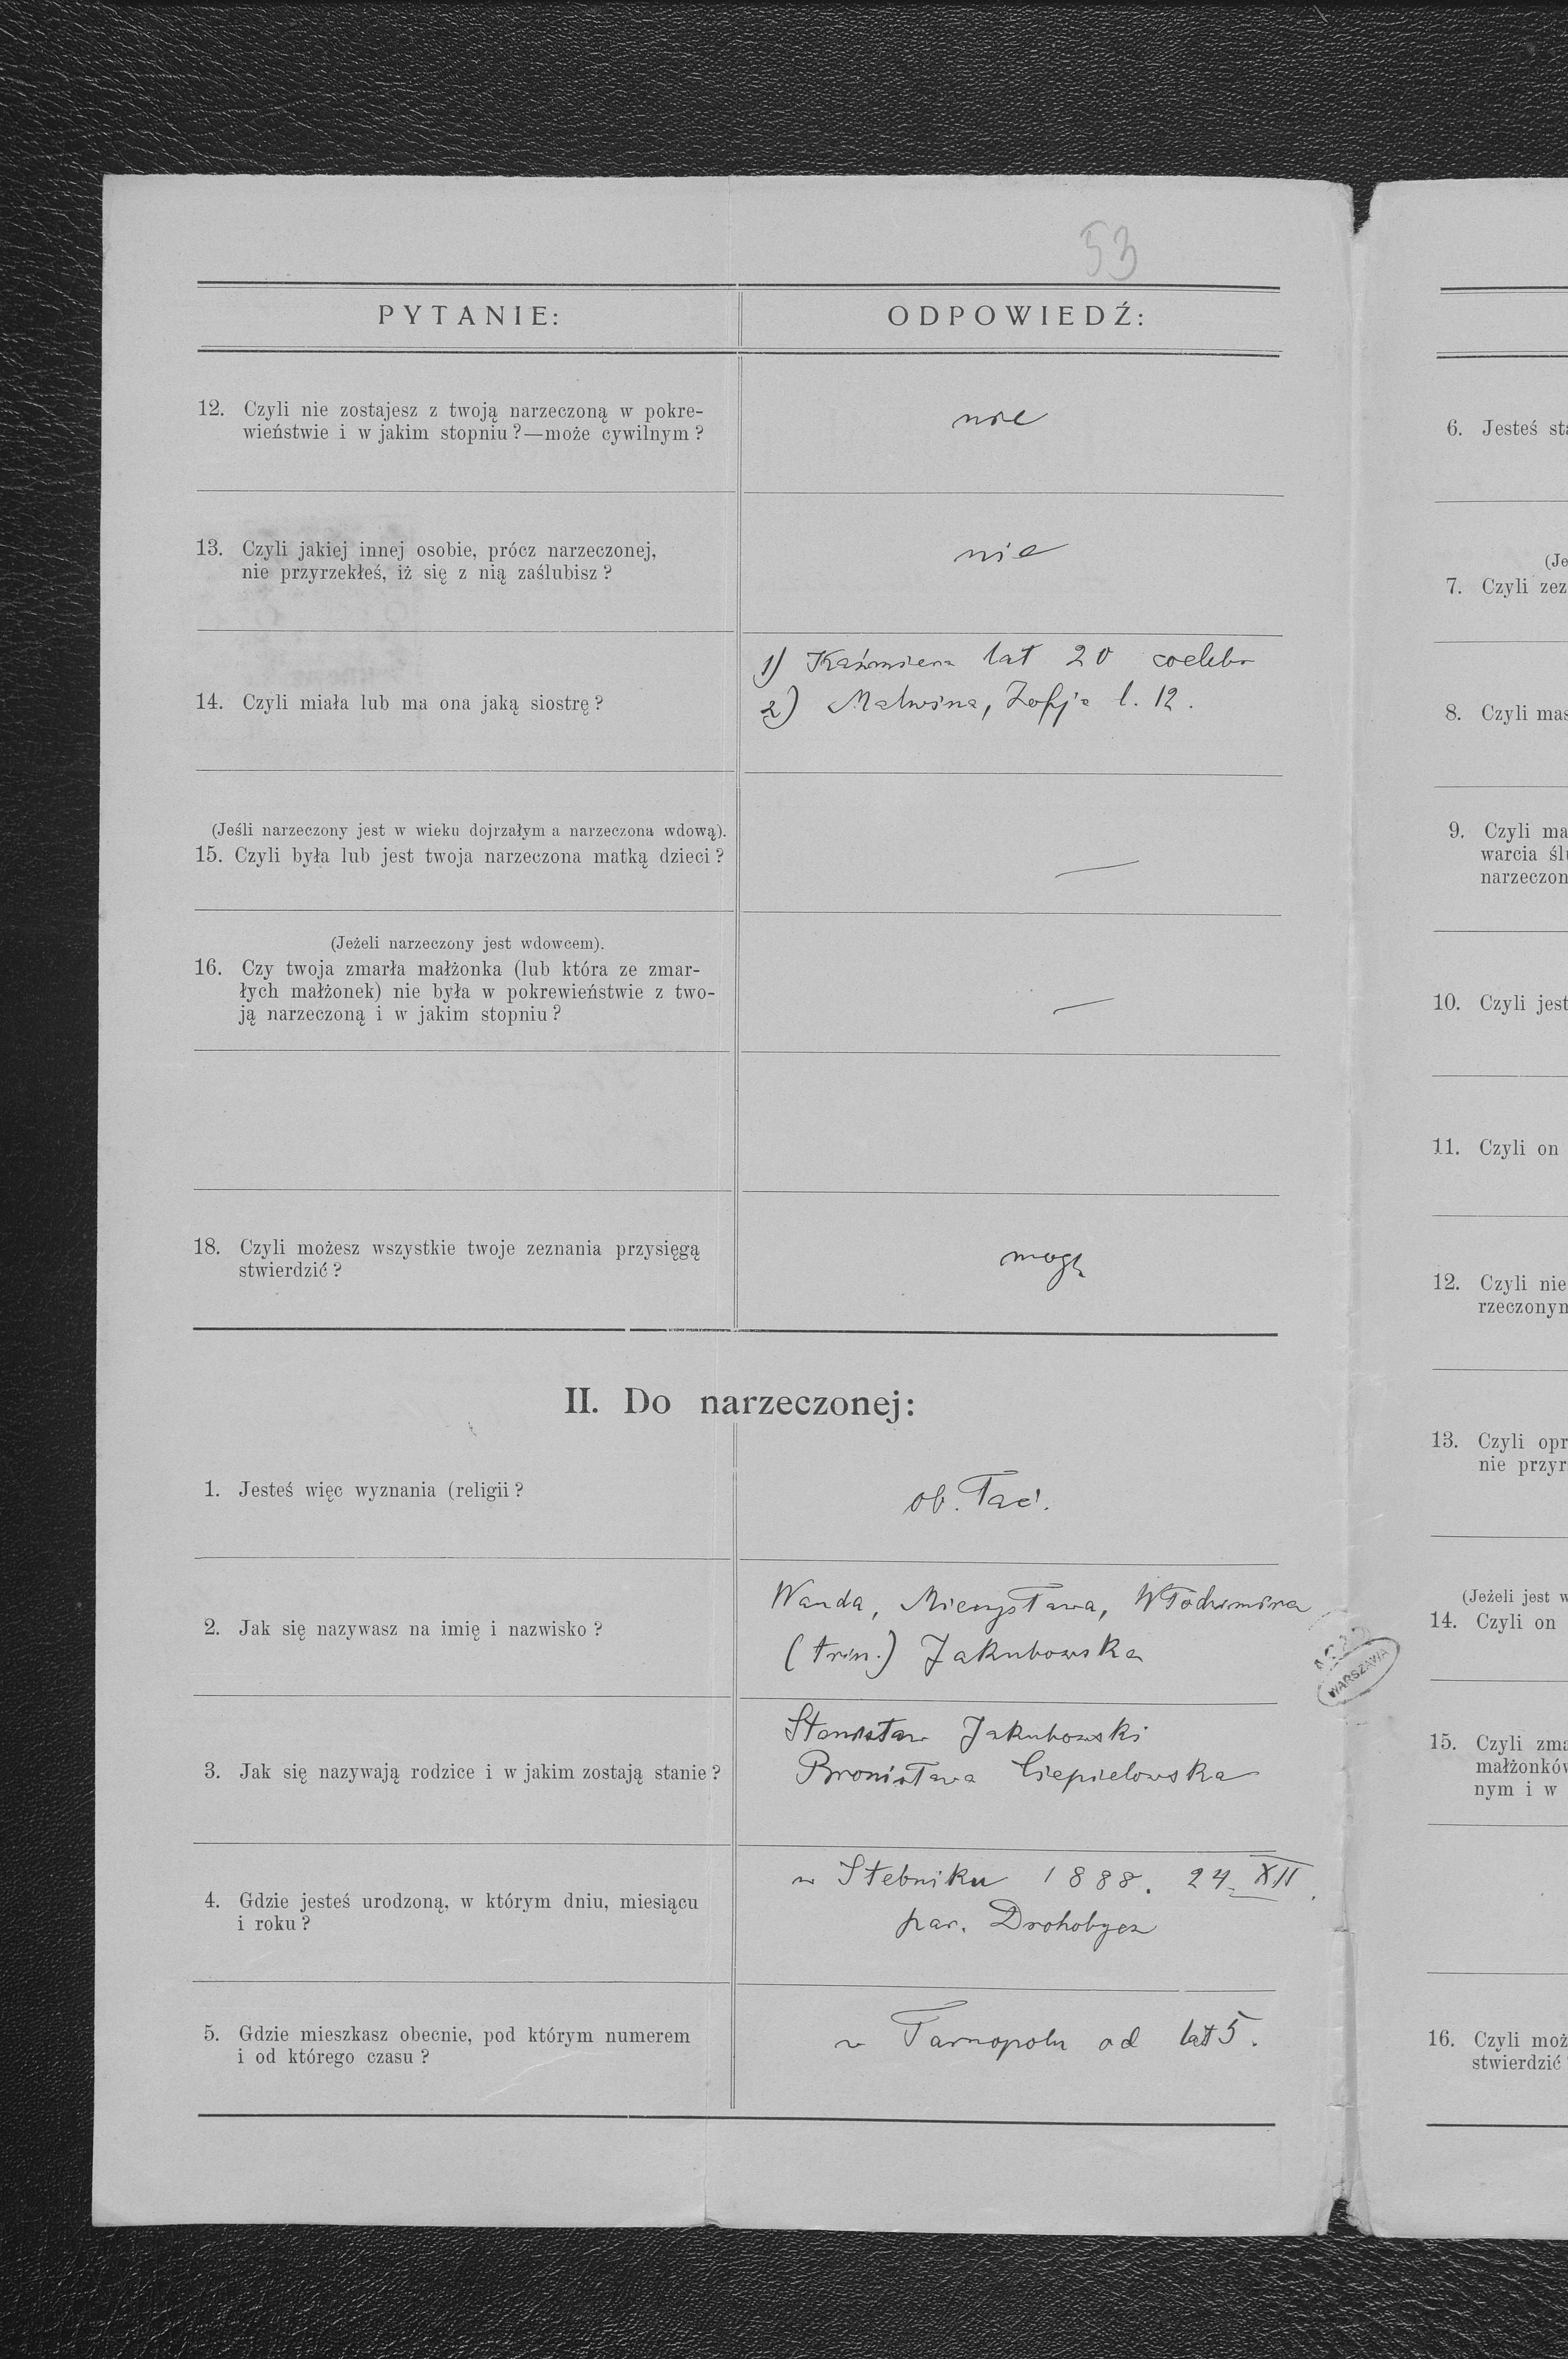 53
PYTANIE:
ODPOWIEDŹ:
12. Czyli nie zostajesz z twoją narzeczoną w pokre-
wieństwie i w jakim stopniu?—może cywilnym?
nie
13. Czyli jakiej innej osobie, prócz narzeczonej,
nie przyrzekłeś, iż się z nią zaślubisz?
nie
14. Czyli miała lub ma ona jaką siostrę?
1) Kaźmiera lat 20 coelebs
2) Malwina, Zofja l. 12.
(Jeśli narzeczony jest w wieku dojrzałym a narzeczona wdową).
15. Czyli była lub jest twoja narzeczona matką dzieci?
—
(Jeżeli narzeczony jest wdowcem).
16. Czy twoja zmarła małżonka (lub która ze zmar-
łych małżonek) nie była w pokrewieństwie z two-
ją narzeczoną i w jakim stopniu?
—
18. Czyli możesz wszystkie twoje zeznania przysięgą
stwierdzić?
mogę
II. Do narzeczonej:
1. Jesteś więc wyznania (religii?
ob. łać.
2. Jak się nazywasz na imię i nazwisko?
Wanda, Mieczysława, Włodzimira
(trin.) Jakubowska
3. Jak się nazywają rodzice i w jakim zostają stanie?
Stanisław Jakubowski
Bronisława Ciepielowska
4. Gdzie jesteś urodzoną, w którym dniu, miesiącu
i roku?
w Stebniku 1888. 24. XII.
par. Drohobycz
5. Gdzie mieszkasz obecnie, pod którym numerem
i od którego czasu?
w Tarnopolu od lat 5.
WARSZAWA
6. Jesteś sta
(Je
7. Czyli zez
8. Czyli mas
9. Czyli ma
warcia ślu
narzeczon
10. Czyli jest
11. Czyli on
12. Czyli nie
rzeczonym
13. Czyli opr
nie przyr
(Jeżeli jest w
14. Czyli on
15. Czyli zma
małżonków
nym i w
16. Czyli moż
stwierdzić